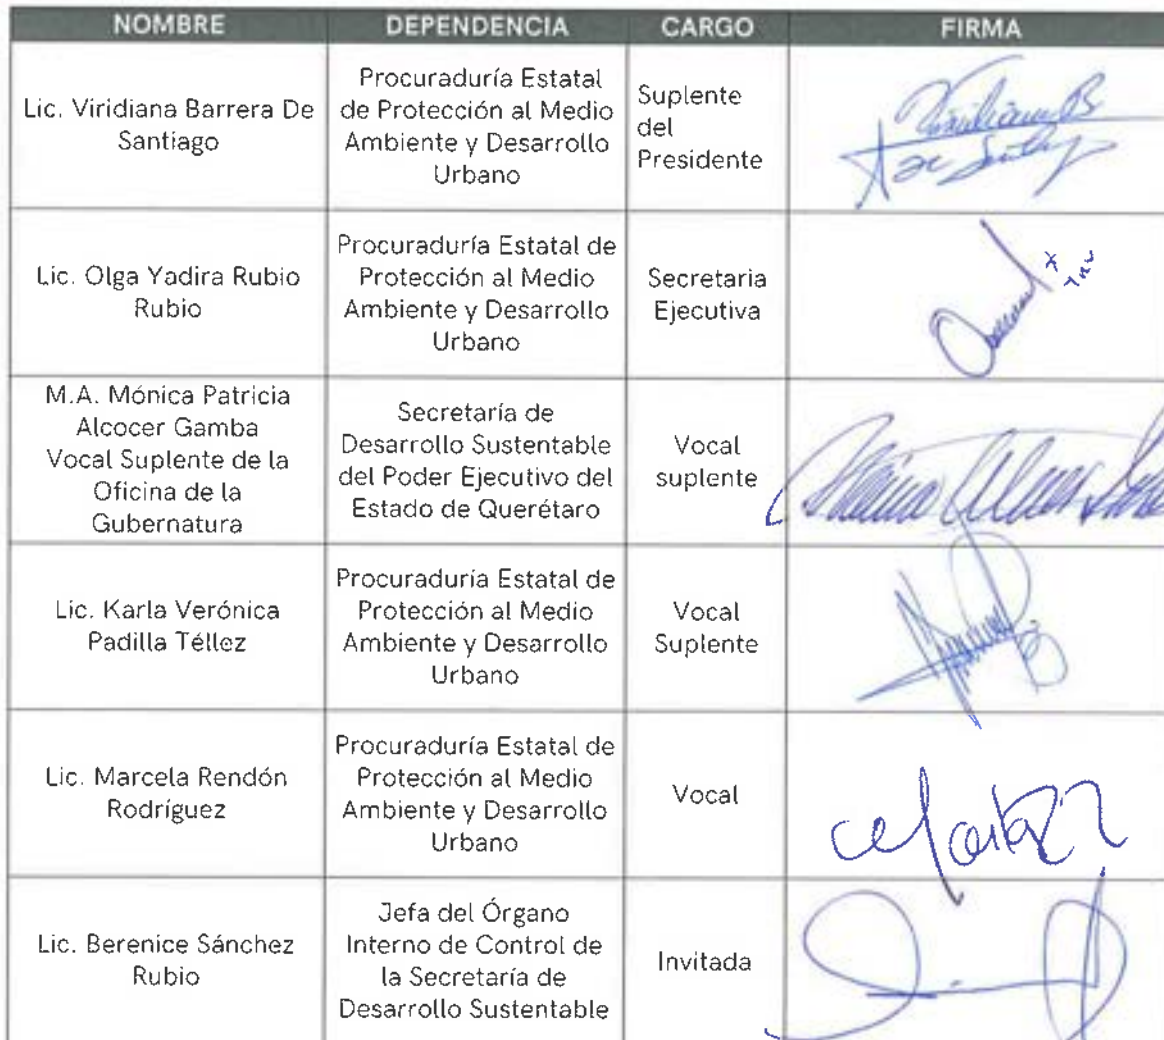 NOMBRE DEPENDENCIA CARGO FIRMA
Lic. Viridiana Barrera De
Santiago
Procuraduría Estatal
de Protección al Medio
Ambiente y Desarrollo
Urbano
Suplente
del
Presidente
Viridiana B
De Santiago
Lic. Olga Yadira Rubio
Rubio
Procuraduría Estatal de
Protección al Medio
Ambiente y Desarrollo
Urbano
Secretaria
Ejecutiva
M.A. Mónica Patricia
Alcocer Gamba
Vocal Suplente de la
Oficina de la
Gubernatura
Secretaría de
Desarrollo Sustentable
del Poder Ejecutivo del
Estado de Querétaro
Vocal
suplente
Lic. Karla Verónica
Padilla Téllez
Procuraduría Estatal de
Protección al Medio
Ambiente y Desarrollo
Urbano
Vocal
Suplente
Lic. Marcela Rendón
Rodríguez
Procuraduría Estatal de
Protección al Medio
Ambiente y Desarrollo
Urbano
Vocal
Lic. Berenice Sánchez
Rubio
Jefa del Órgano
Interno de Control de
la Secretaría de
Desarrollo Sustentable
Invitada